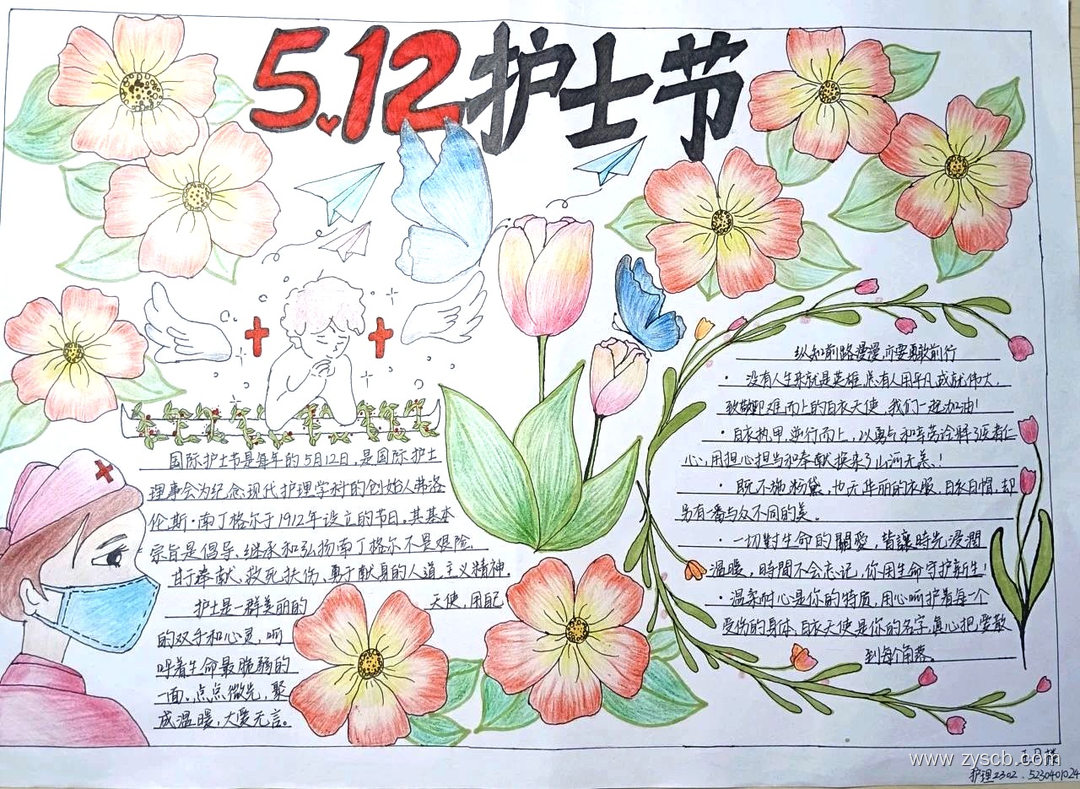 5.12护士节
国际护士节是每年的5月12日,是国际护士
理事会为纪念现代护理学科的创始人弗洛
伦斯·南丁格尔于1912年设立的节日。其基本
宗旨是倡导、继承和弘扬南丁格尔不畏艰险、
甘于奉献、救死扶伤、勇于献身的人道主义精神.
护士是一群美丽的天使,用自己
的双手和心灵,呵
呼着生命最脆弱的
一面。点点微光,聚
成温暖,大爱无言。
纵知前路漫漫,亦要勇敢前行
· 没有人生来就是英雄,总有人用平凡成就伟大,
致敬迎难而上的白衣天使,我们一起加油!
· 白衣执甲,逆行而上,以勇气和辛劳诠释了医者仁
心,用担心担当和奉献换来了山河无恙.!
· 既不施粉黛,也无华丽的衣服,白衣白帽,却
另有一番与众不同的美。
· 一切對生命的關愛,皆讓時光浸潤
温暖,時間不会忘记,你用生命守护新生!
· 温柔耐心是你的特质,用心呵护着每一个
受伤的身体,白衣天使是你的名字,真心把爱散
到每个角落。
www.zyscb.com
护理2302.5230401024